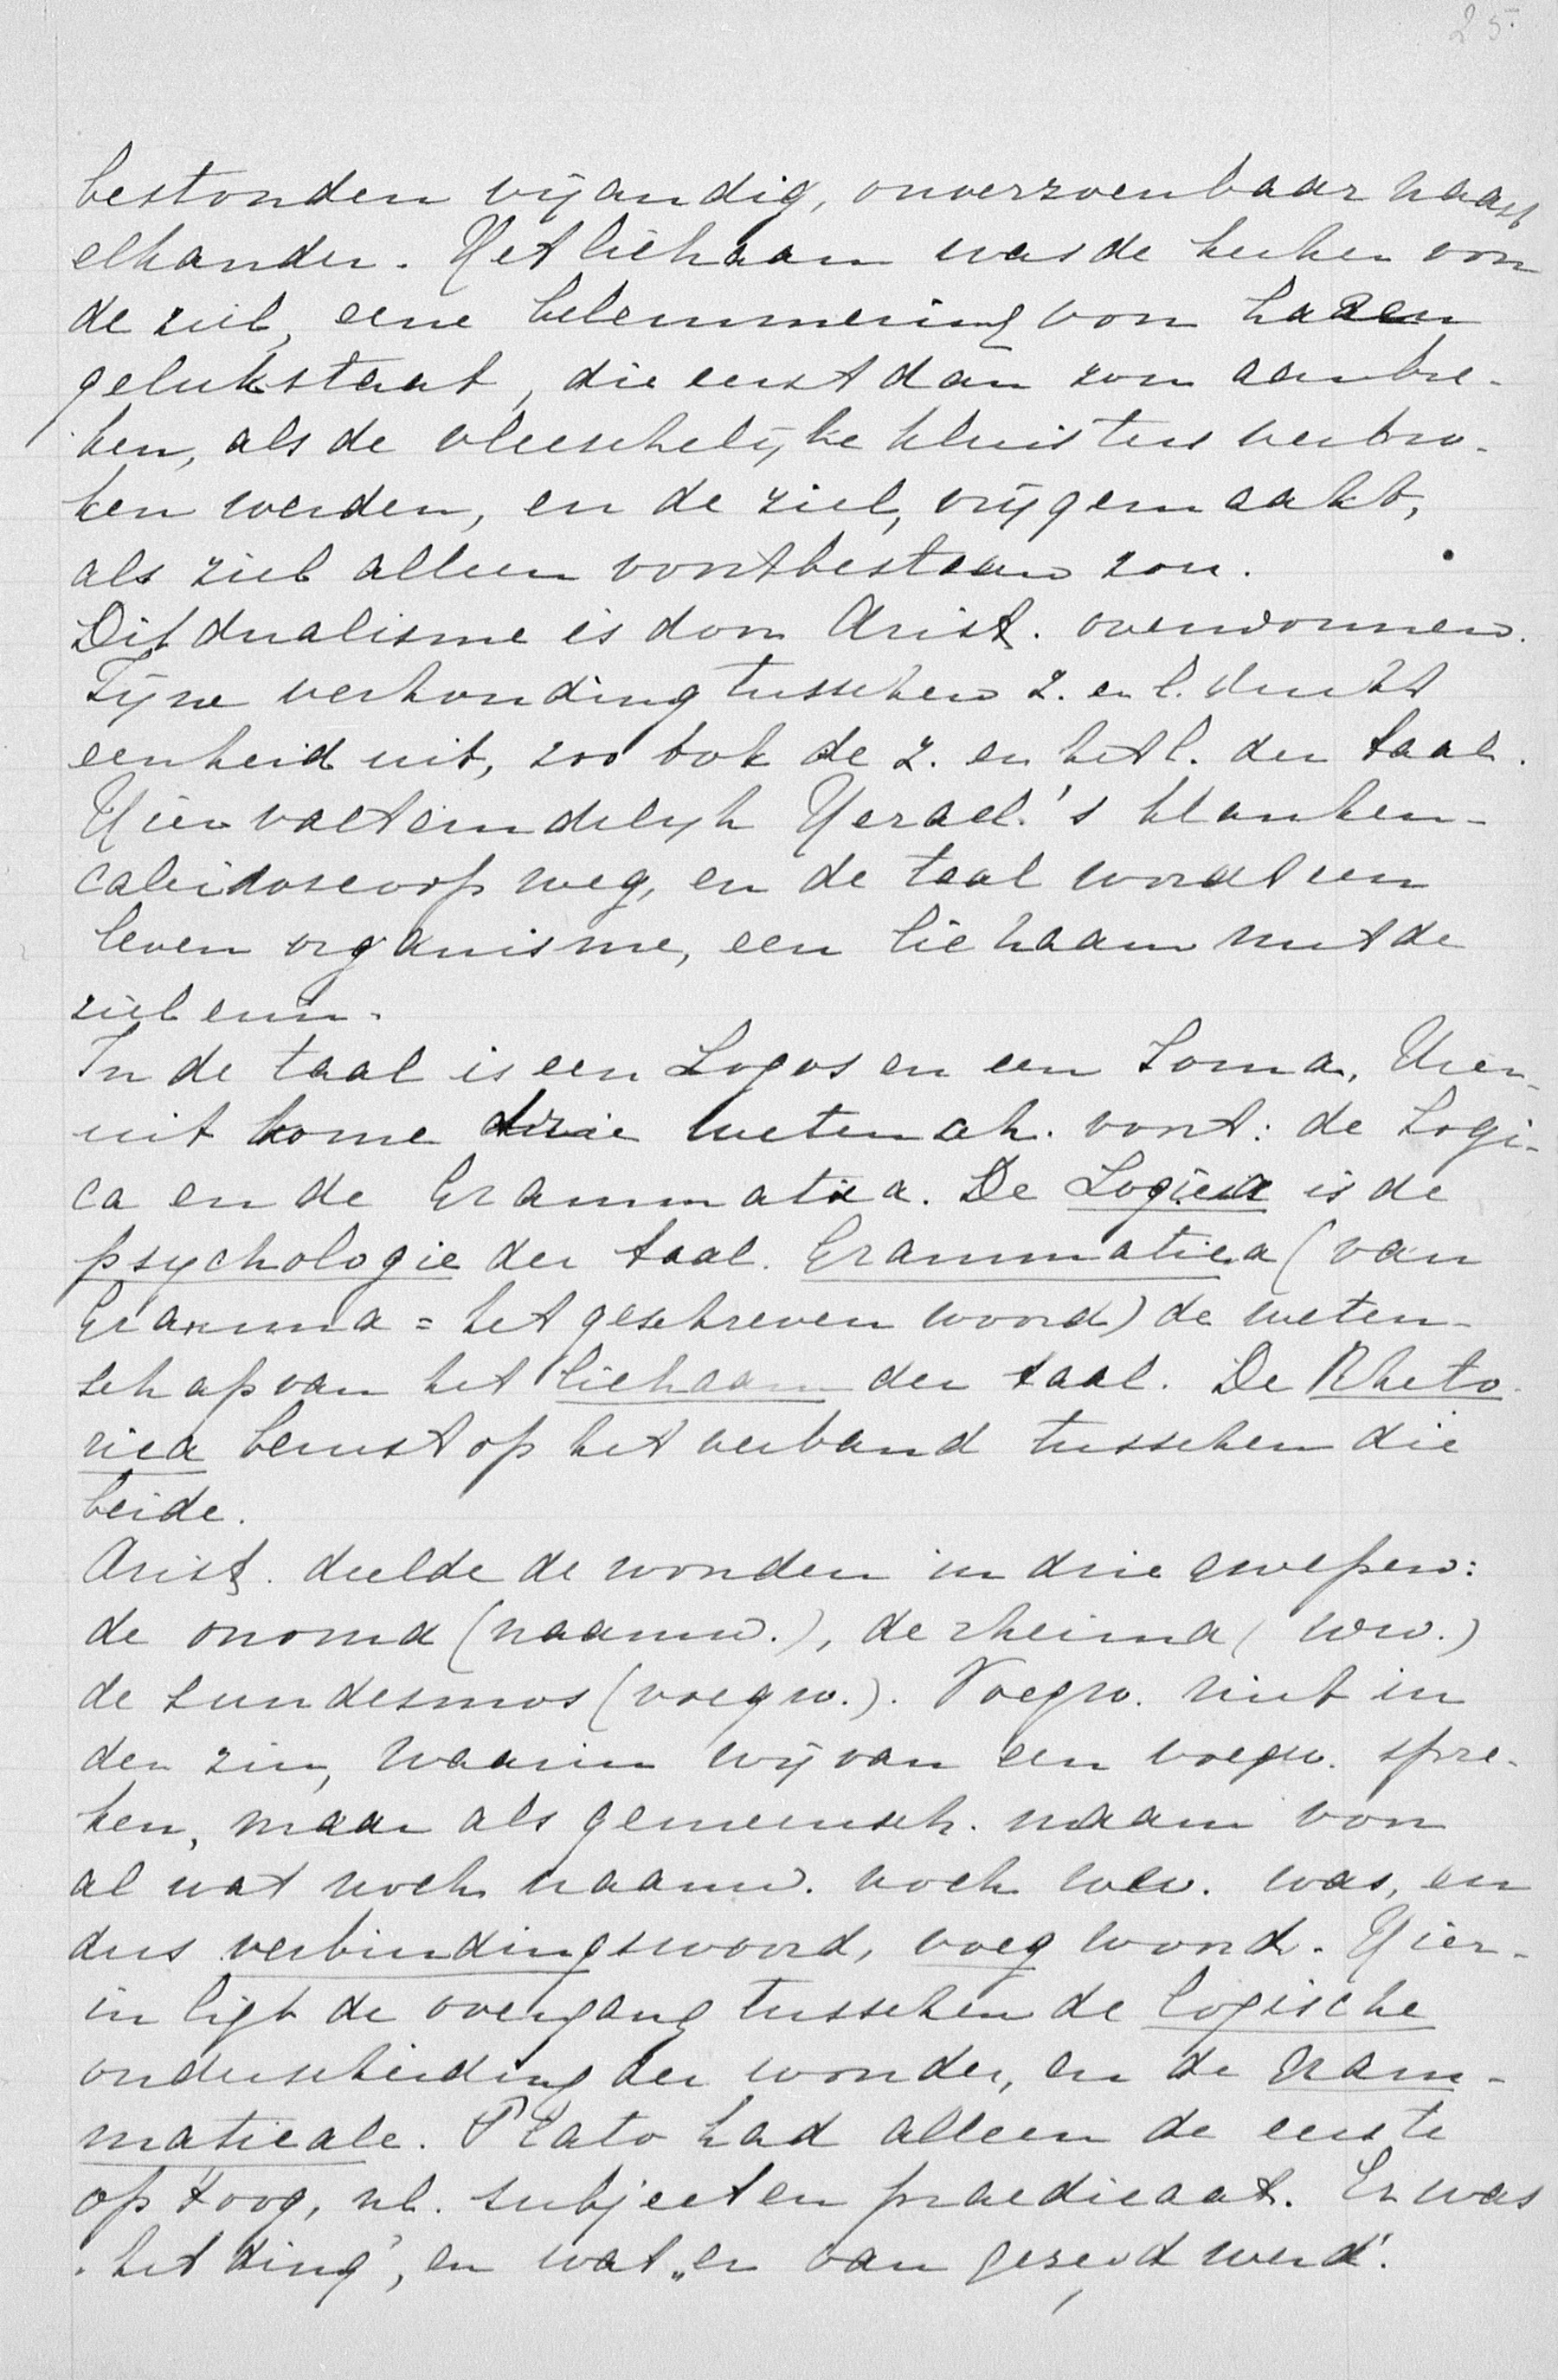 25.
bestonden vijandig, onverzoenbaar naast
elkander. Het lichaam was de kerker von
de ziel, eene belemmering von haren
gelukstaat, die eerst dán zou aanbre-
ken, als de vleeschelijke kluisters verbro-
ken werden, en de ziel, vrijgemaakt,
als ziel alleen voortbestaan zou.
Dit dualisme is door Arist. overwonnen.
Zijne verhouding tusschen z. en l. drukt
eenheid uit, zoo ook de z. en het l. der taal.
Hier valt eindelijk Heracl.'s klanken-
caleidoscoop weg, en de taal wordt een
leven organisme, een lichaam met de
ziel erin.
In de taal is een Logos en een Soma. Hier-
uit kome drie wetensch. voort: de Logi-
ca en de Grammatica. De Logica is de
psychologie der taal. Grammatica (van
Gramma = het geschreven woord) de weten-
schap van het lichaam der taal. De Rheto-
rica berust op het verband tusschen die
beide.
Arist. deelde de woorden in drie groepen:
de onoma (naamw.), de rheima (ww.)
de sundesmos (voegw.). Voegw. niet in
den zin, waarin wij van een voegw. spre-
ken, maar als gemeensch. naam von
al wat noch naamw. noch ww. was, en
dus verbindingswoord, voegwoord. Hier-
in ligt de overgang tusschen de logische
onderscheiding der woorden, en de gram-
maticale. Plato had alleen de eerste
op 't oog, nl. subject en praedicaat. Er was
"het ding", en wat "er van gezegd werd".